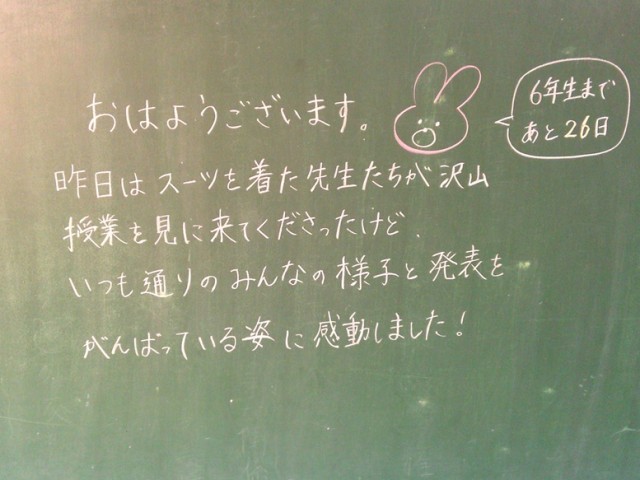 おはようございます。
6年生まで
あと26日
昨日はスーツを着た先生たちが沢山
授業を見に来てくださったけど、
いつも通りのみんなの様子と発表を
がんばっている姿に感動しました!